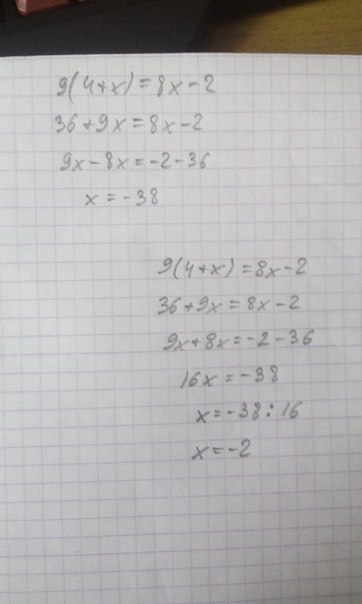 9(4+x)=8x-2
36+9x=8x-2
9x-8x=-2-36
x=-38
9(4+x)=8x-2
36+9x=8x-2
9x+8x=-2-36
16x=-38
x=-38:16
x=-2